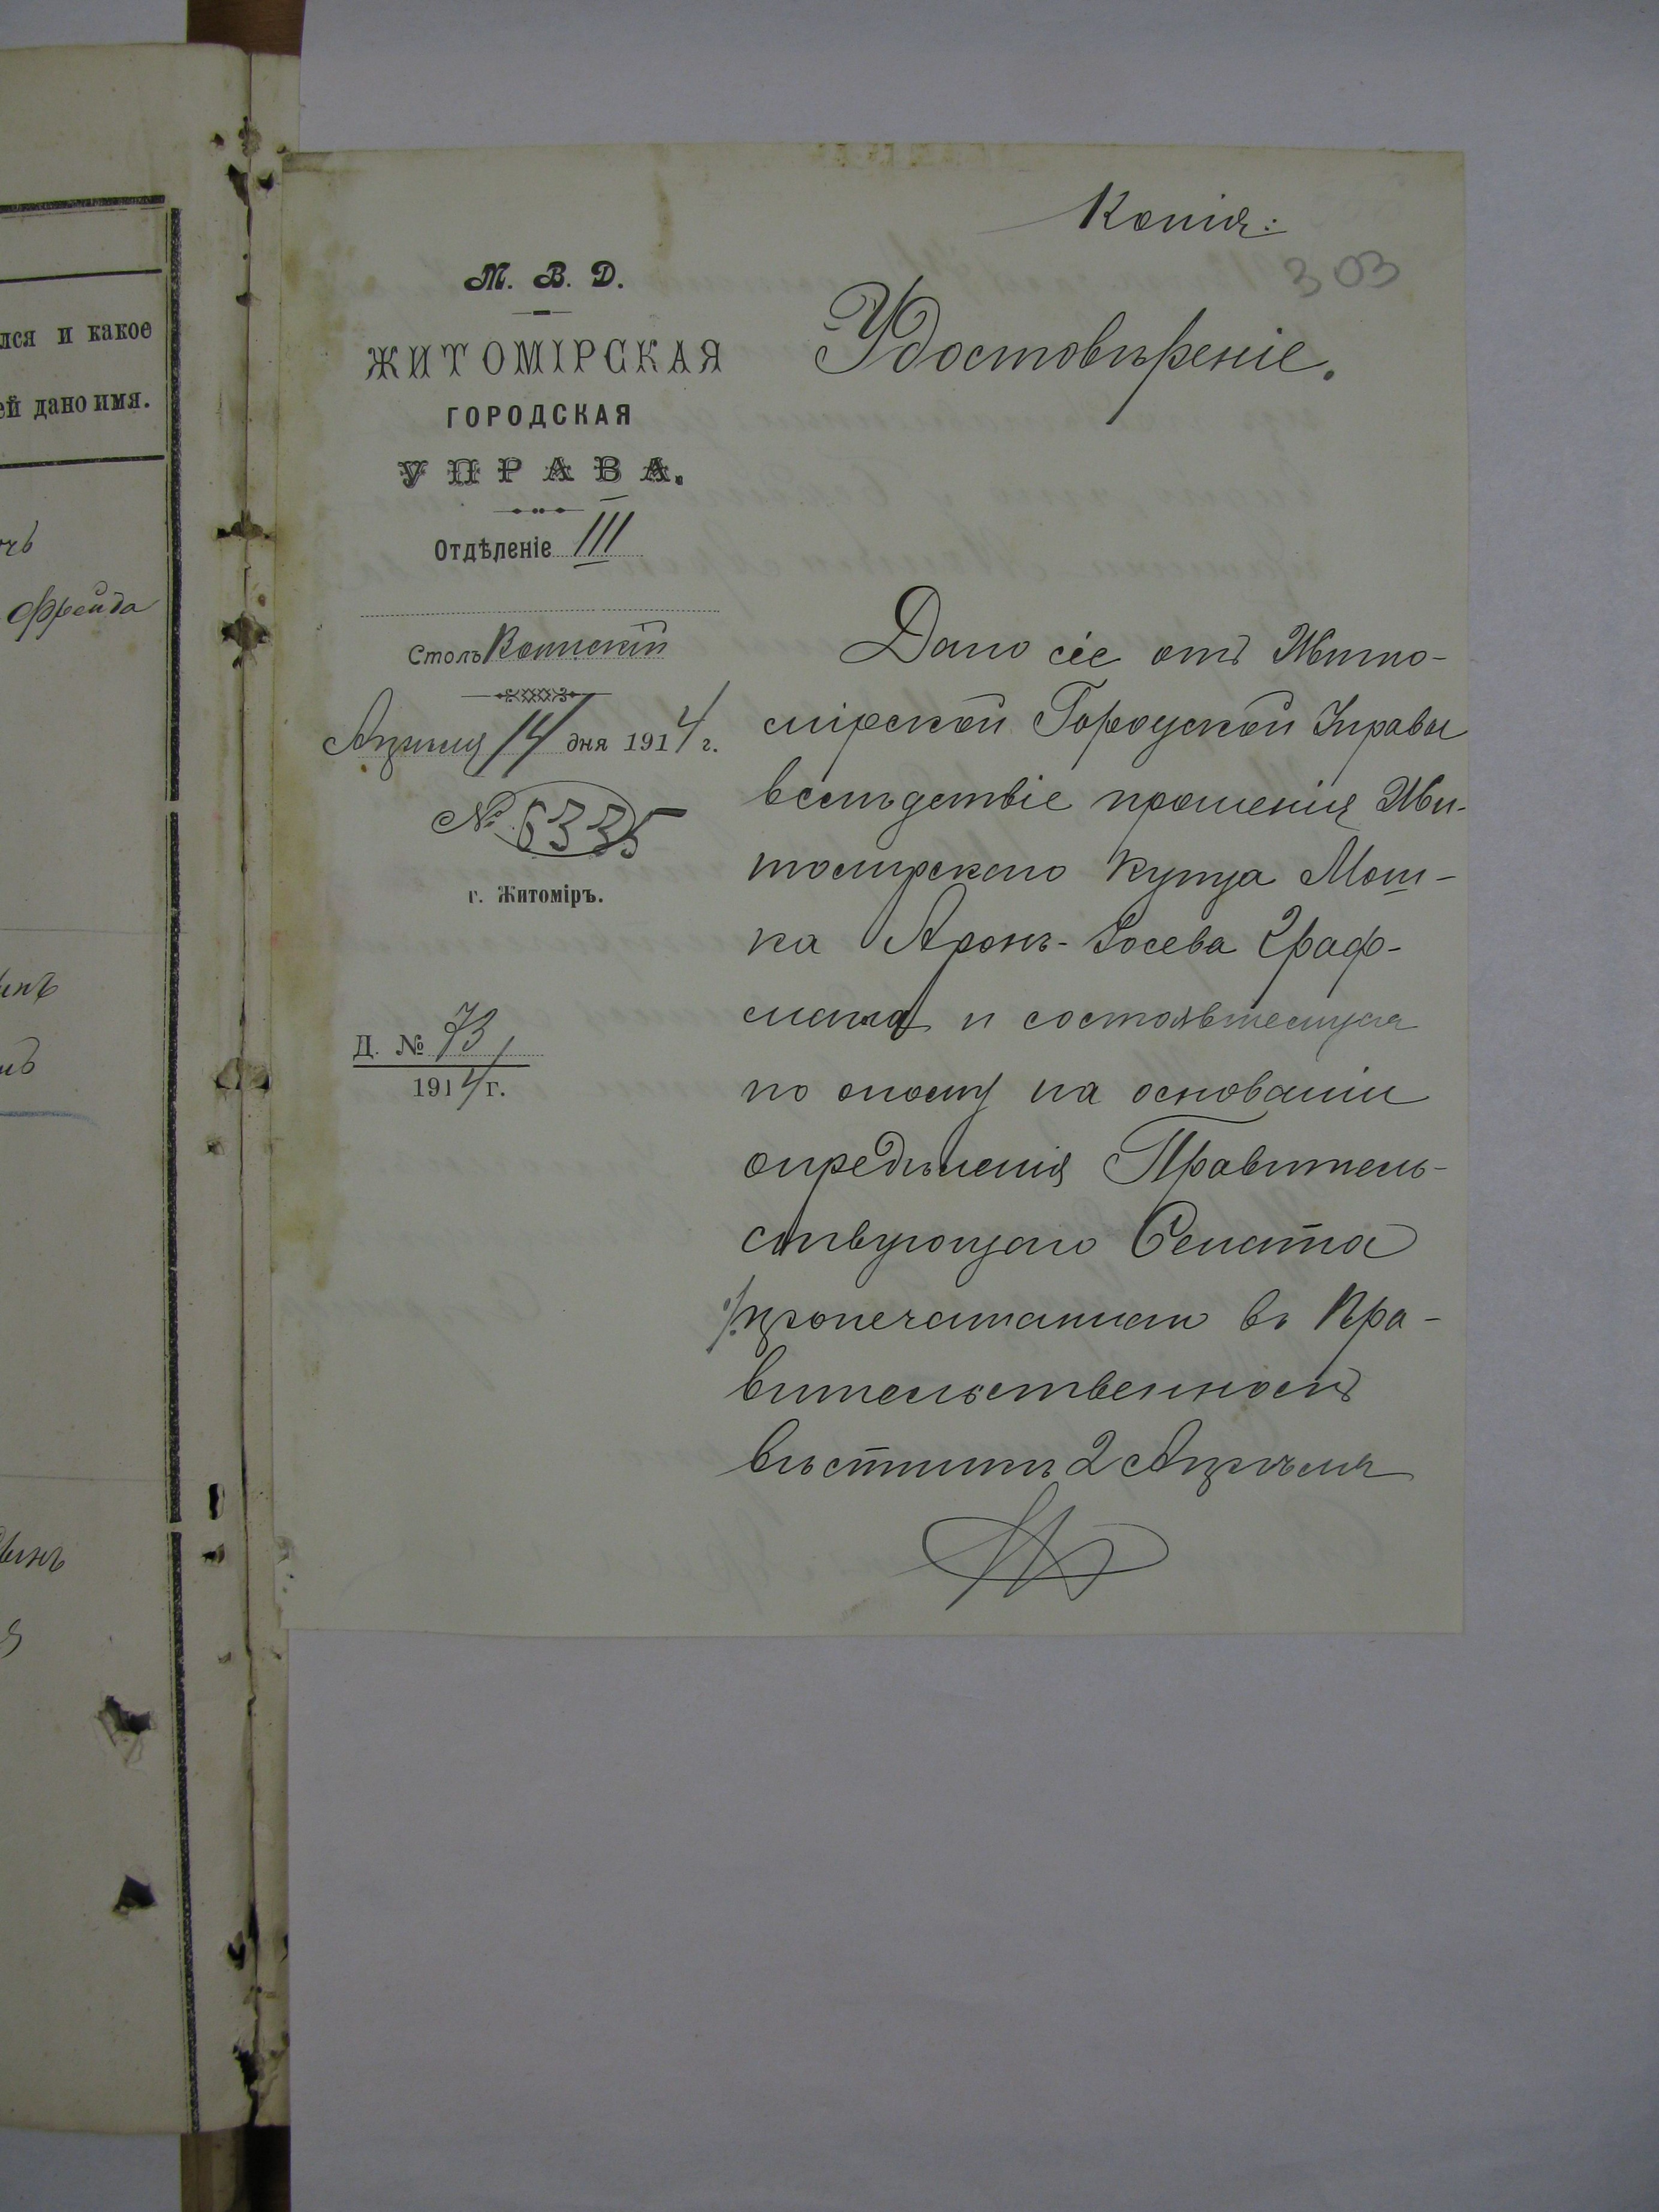 лся и какое
ей дано имя.
Фрейда
Копія:
303
М. В. Д.
ЖИТОМІРСКАЯ
ГОРОДСКАЯ
УПРАВА.
Отдѣленіе III
Столъ Воинскій
Апрѣля 14 дня 1914 г.
№ 6335
г. Житоміръ.
Д. № 73
1914 г.
Удостовѣреніе.
Дано сіе отъ Жито-
мірской Городской Управы
вслѣдствіе прошенія Жи-
томирскаго купца Мош-
ка Аронъ-Іосева Граф-
мана и состоявшемуся
по оному на основаніи
опредѣленія Правитель-
ствующаго Сената
пропечатаннаго въ Пра-
вительственномъ
вѣстникѣ 2 Апрѣля